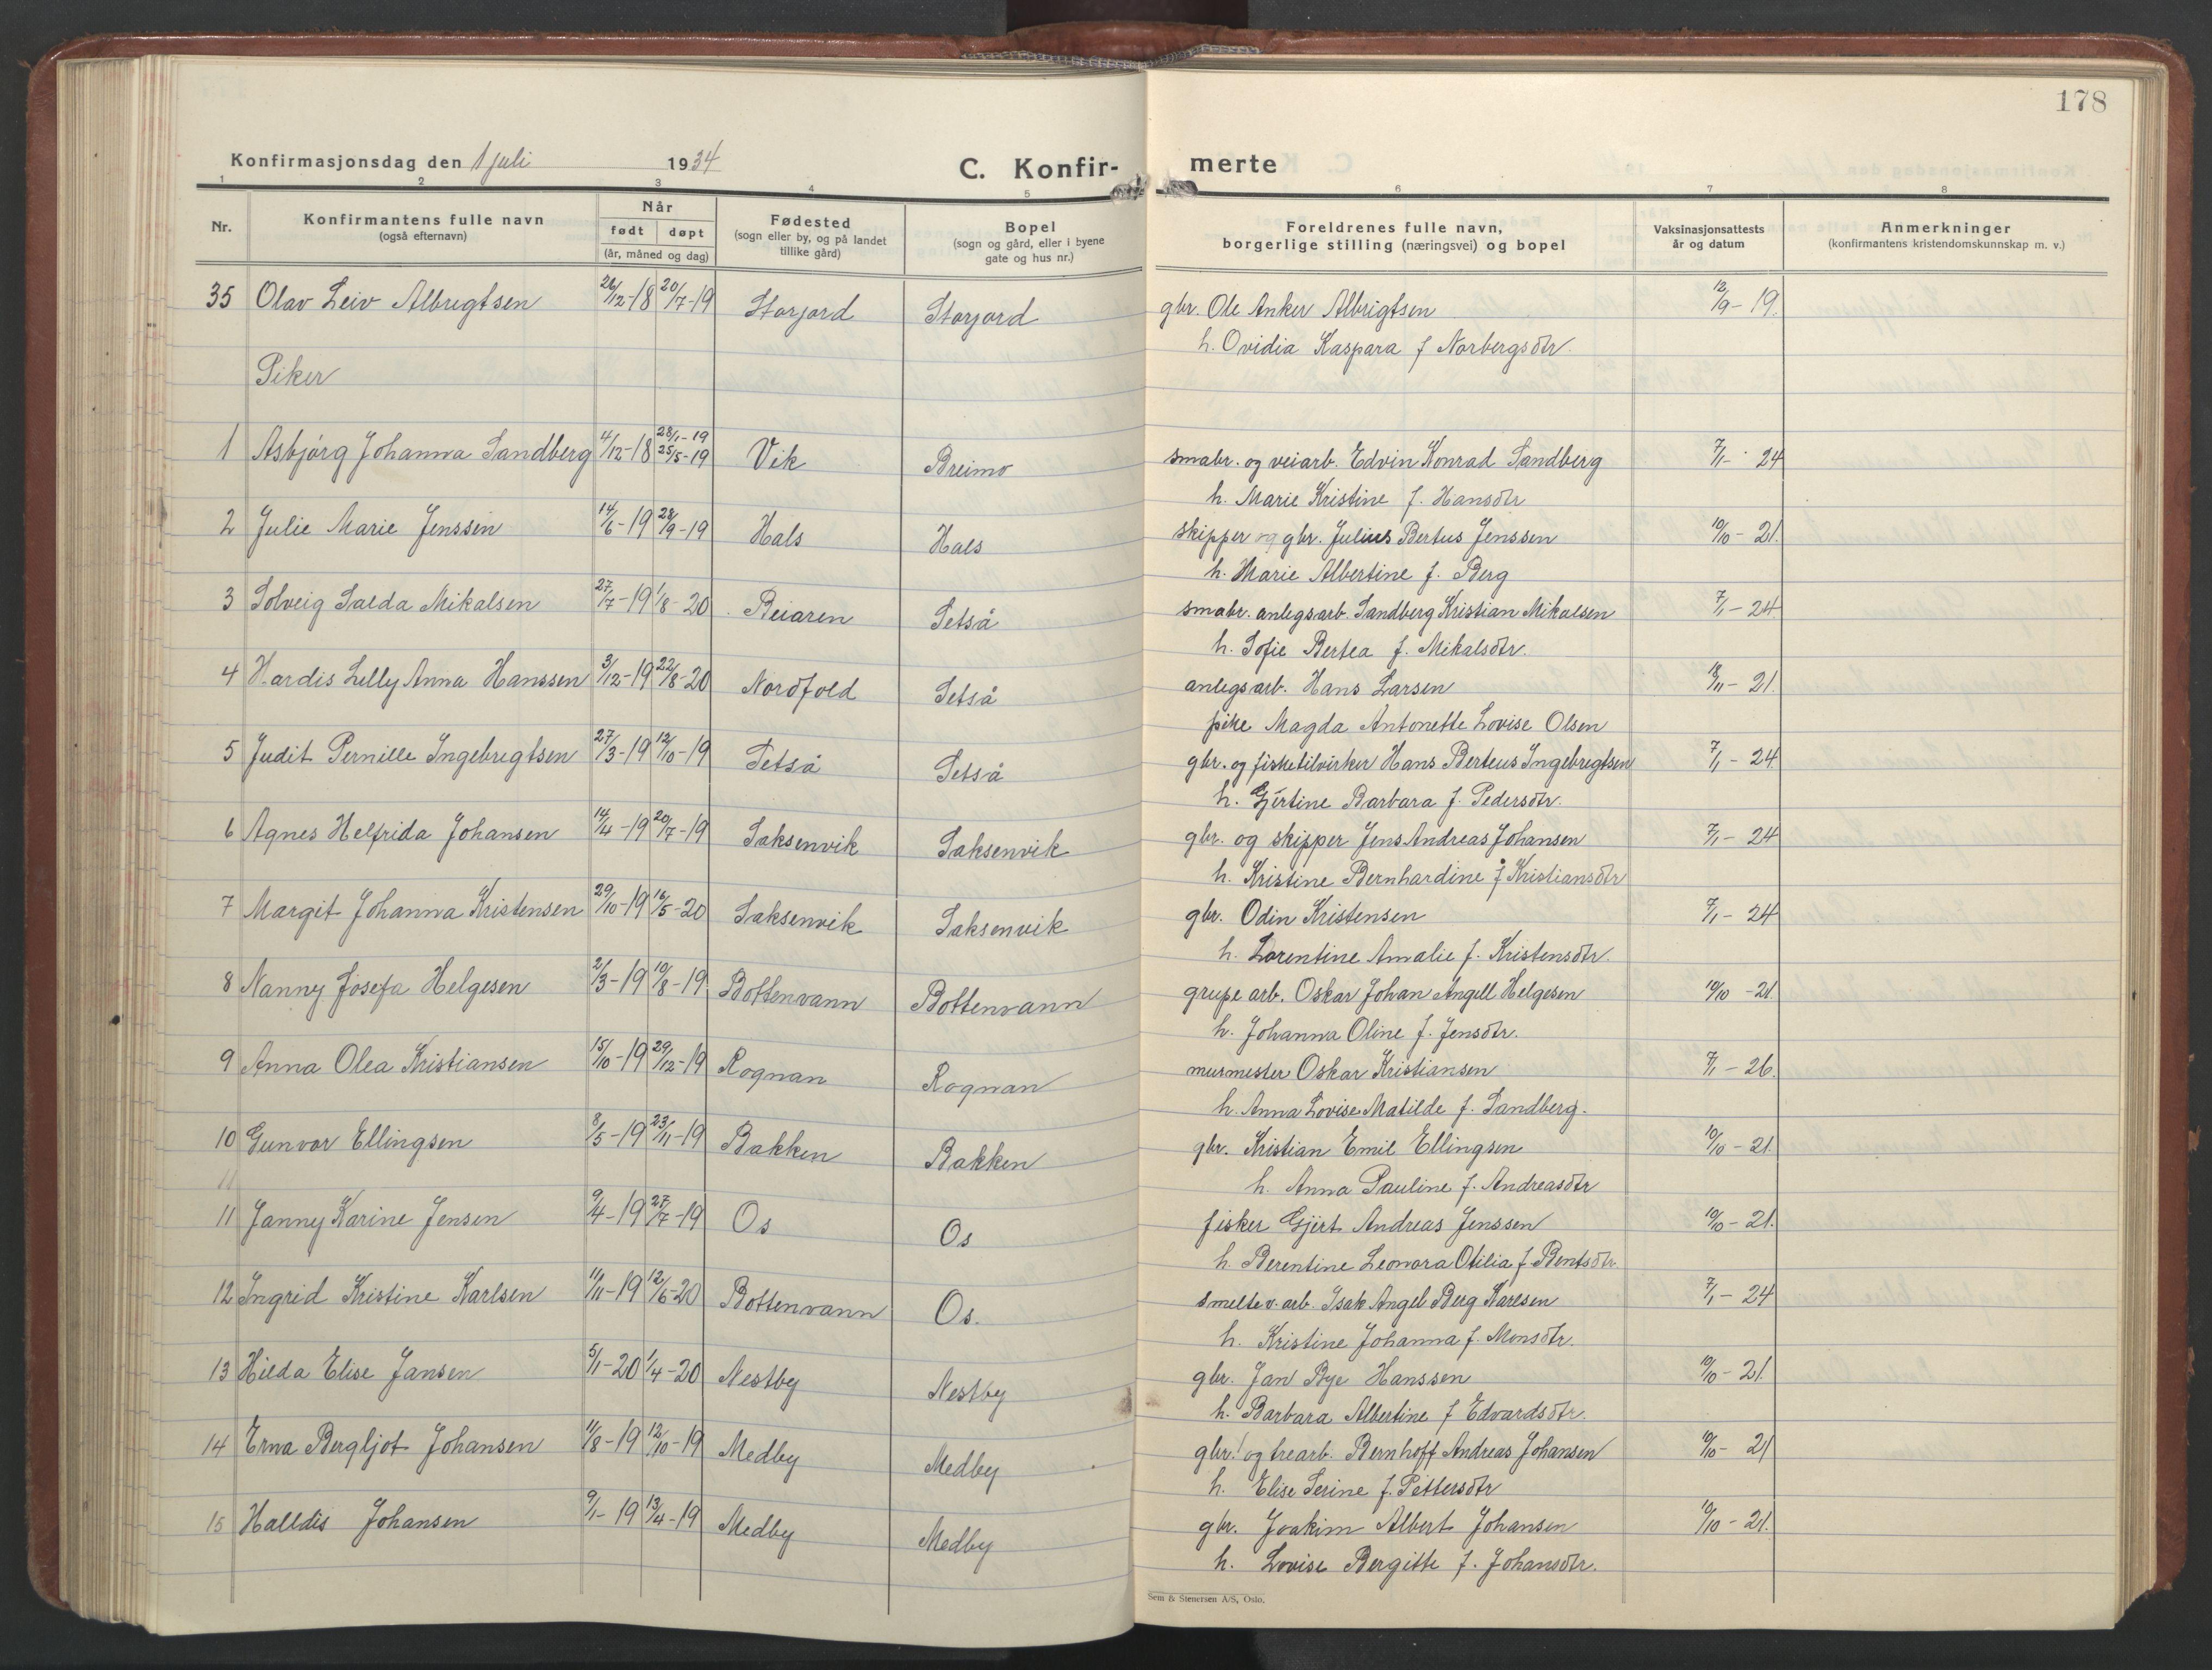 178
Konfirmasjonsdag den 1 juli 1934 C. Konfir- merte
1 2 3 4 5 6 7 8
Nr. Konfirmantens fulle navn (også efternavn) Når født døpt (år, måned og dag) Fødested (sogn eller by, og på landet tillike gård) Bopel (sogn og gård, eller i byene gate og hus nr.) Foreldrenes fulle navn, borgerlige stilling (næringsvei) og bopel Vaksinasjonsattests år og datum Anmerkninger (konfirmantens kristendomskunnskap m. v.)
35 Olav Leiv Albregtsen 26/12-18 20/7-19 Storjord Storjord gbr. Ole Anker Albrigtsen 12/9-19.
h. Ovidia Kaspara f Norbergsdtr.
Piker
1 Asbjørg Johanna Sandberg 4/12-18 28/1-19 25/5-19 Vik Breimo smabr. og veiarb. Edvin Konrad Sandberg 7/1-24
h. Marie Kristine f. Hansdtr
2 Julie Marie Jenssen 14/6-19 28/9-19 Hals Hals skipper og gbr. Julius Bertus Jenssen 10/10-21.
h. Marie Albertine f. Berg
3 Solveig Salda Mikalsen 27/7-19 1/8-20 Beiaren Setså smabr. anlegsarb. Sandberg Kristian Mikalsen 7/1-24
h. Sofie Bertea f. Mikalsdtr.
4 Hardis Lilly Anna Hanssen 3/12-19 22/8-20 Nordfold Setså anlegsarb. Hans Larsen 18/11-21.
pike Magda Antonette Lovise Olsen
5 Judit Pernille Ingebregtsen 27/3-19 12/10-19 Setså Setså gbr. og fisketilvirker Hans Berteus Ingebregtsen 7/1-24.
h. Gjertine Barbara f. Pedersdtr.
6 Agnes Helfrida Johansen 14/4-19 20/7-19 Saksenvik Saksenvik gbr. og skipper Jens Andreas Johansen 7/1-24
h. Kristine Bernhardine f Kristiansdtr
7 Margit Johanna Kristensen 29/10-19 16/5-20 Saksenvik Saksenvik gbr. Odin Kristensen 7/1-24
h. Lorentine Amalie f. Kristensdtr.
8 Nanny Josefa Helgesen 2/3-19 10/8-19. Bottenvann Bottenvann grupe arb. Oskar Johan Angell Helgesen 10/10-21.
h. Johanna Oline f. Jensdtr.
9 Anna Olea Kristiansen 15/10-19 29/12-19 Rognan Rognan murmester Oskar Kristiansen 7/1-26.
h. Anna Lovise Matilde f. Sandberg.
10 Gunvor Ellingsen 8/5-19 23/11-19 Bakken Bakken gbr. Kristian Emil Ellingsen 10/10-21.
11 h. Anna Pauline f. Andreasdtr
11 Janny Karine Jensen 9/4-19 27/7-19 Os Os fisker Gjert Andreas Jenssen 10/10-21.
h. Berentine Leonora Otilia f. Bentsdtr.
12 Ingrid Kristine Karlsen 11/11-19 12/6-20 Bottenvann Os. smeltev. arb. Isak Angel Berg Karlsen 7/1-24
h. Kristine Johanna f. Monsdtr.
13 Hilda Elise Jansen 5/1-20 1/4-20 Nestby Nestby gbr. Jan Bye Hanssen 10/10-21.
h. Barbara Albertine f Edvardsdtr.
14 Erna Bergljot Johansen 11/8-19 12/10-19 Medby Medby gbr. og trearb. Bernhoff Andreas Johansen 10/10-21
h. Elise Serine f. Pettersdtr
15 Halldis Johansen 9/1-19 13/4-19 Medby Medby gbr. Joakim Albert Johansen 10/10-21.
h. Lovise Bergitte f. Johansdtr.
Sem & Stenersen A/S, Oslo.